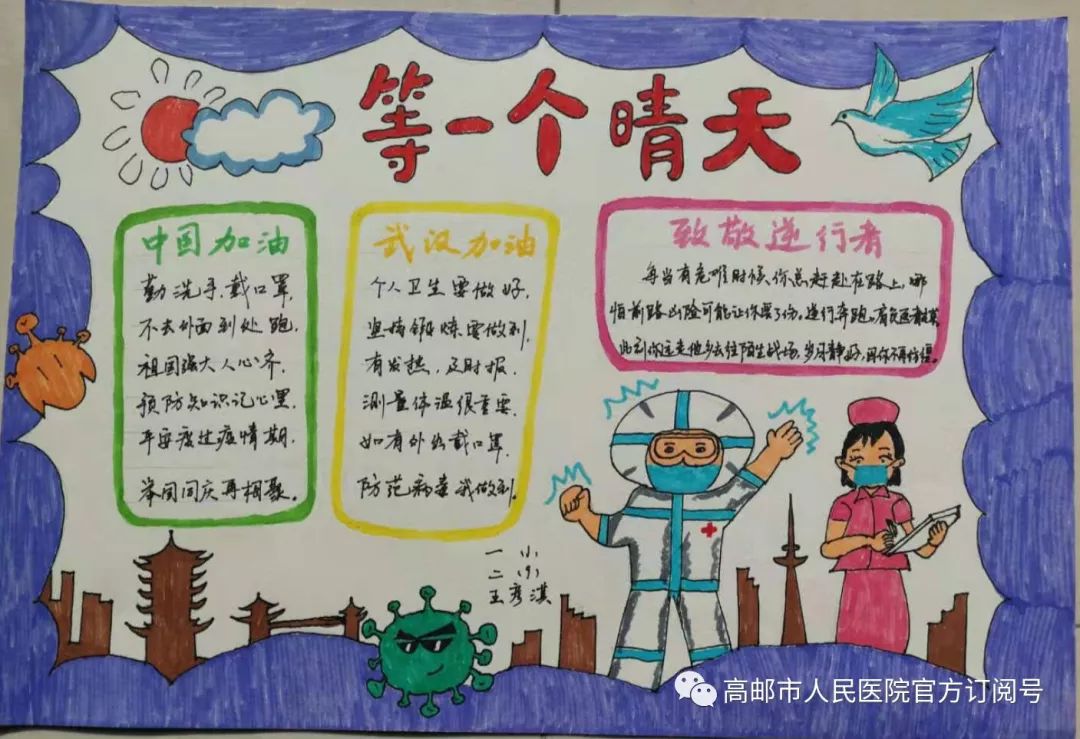 等一个晴天
中国加油
勤洗手,戴口罩,
不去外面到处跑,
祖国强大人心齐,
预防知识记心里,
平安度过疫情期,
举国同庆再相聚。
武汉加油
个人卫生要做好,
坚持锻炼要做到,
有发热,及时报,
测量体温很重要,
如有外出戴口罩,
防范病毒我做到。
致敬逆行者
每当有危难时候,你总赶赴在路上,哪
怕前路凶险可能让你受了伤。逆行奔跑,肩负
此刻你远走他乡去往陌生战场,岁月静好,因你不再彷徨。
一小
二(9)
王彦淇
高邮市人民医院官方订阅号